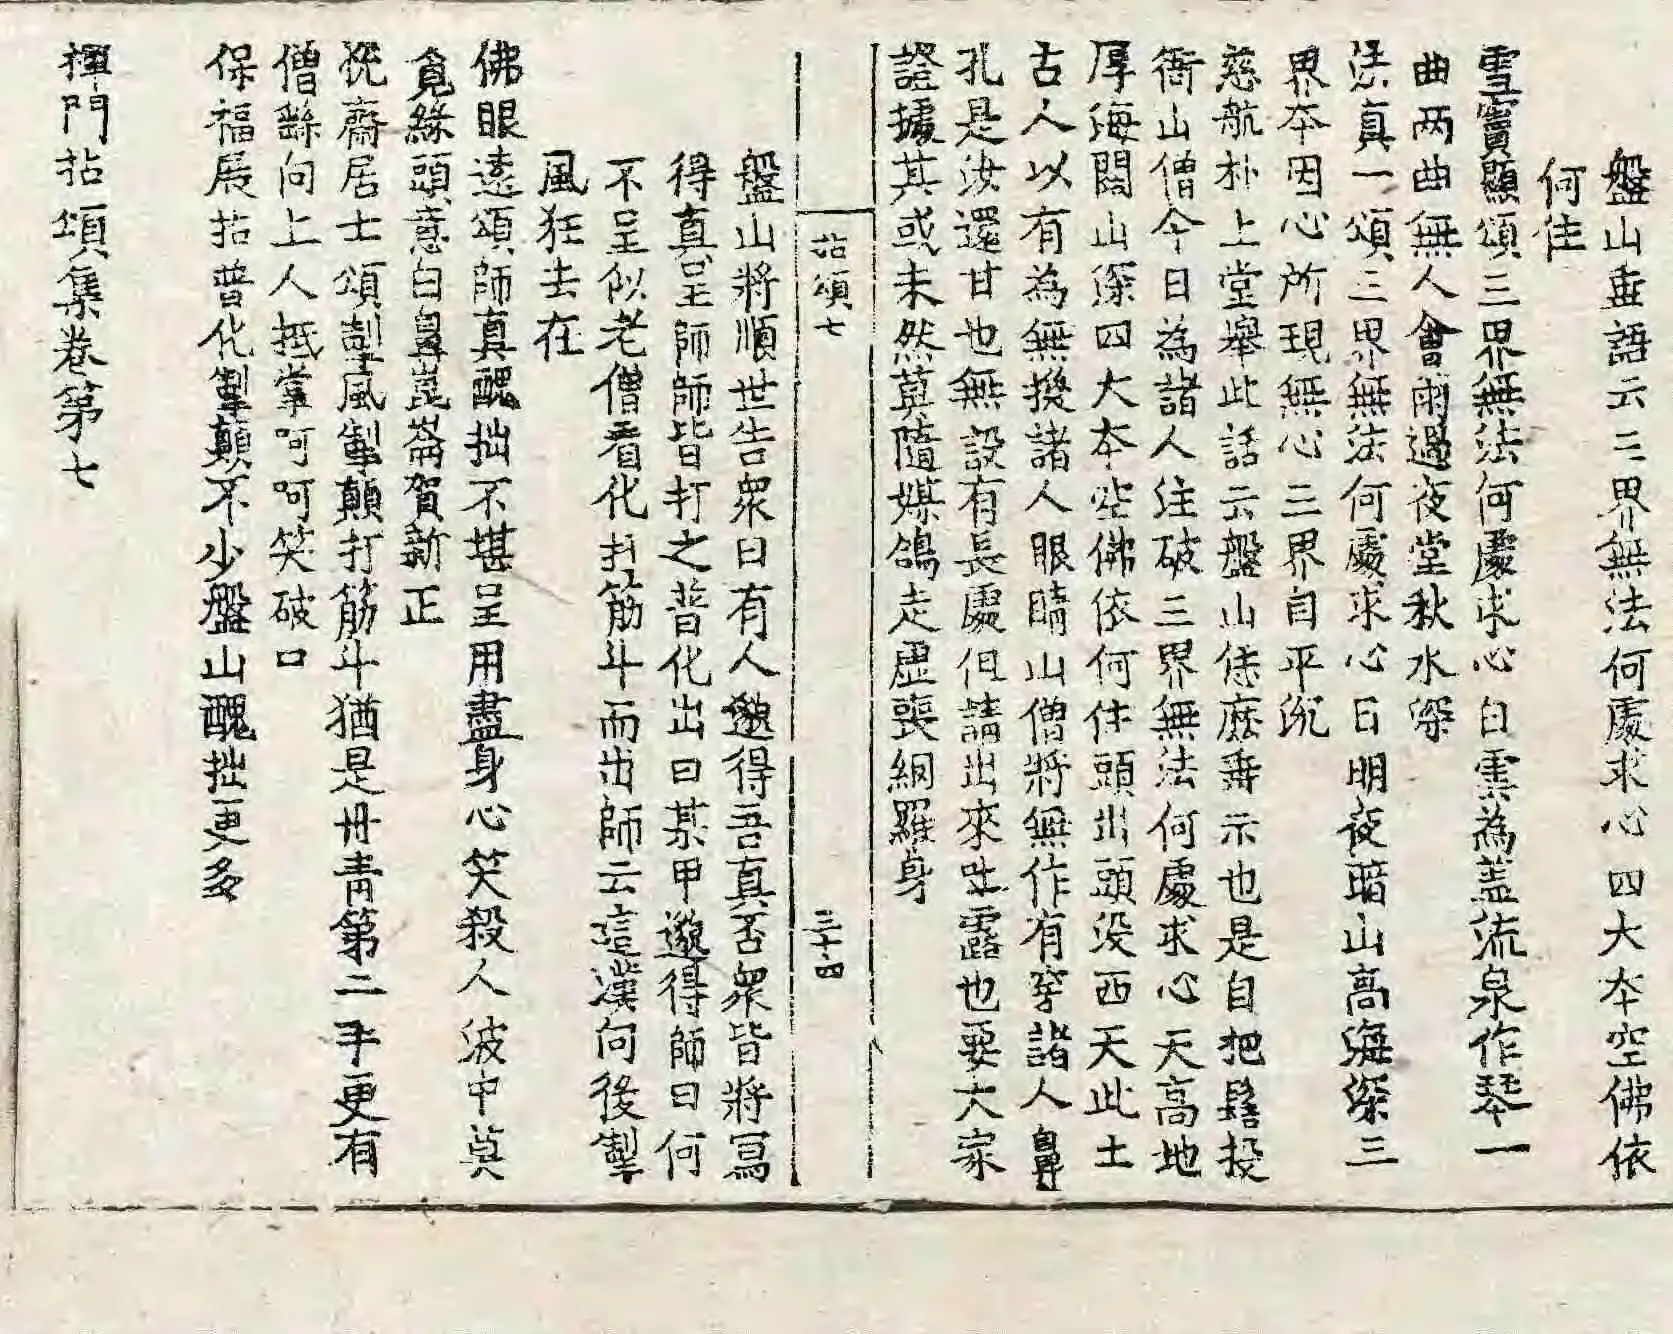 盤山垂語云三界無法何處求心四大夲空佛依
何住
雪竇顯頌三界無法何處求心白雲為盖流泉作琴一
曲两曲無人會雨過夜堂秋水深
法真一頌三界無法何處求心日明夜暗山高海深三
界夲因心所現無心三界自平沉
慈航朴上堂舉此話云盤山恁麽垂示也是自把髻投
衙山僧今日為諸人注破三界無法何處求心天高地
厚海闊山深四大夲空佛依何住頭出頭没西天此土
古人以有為無換諸人眼睛山僧將無作有穿諸人鼻
孔是汝還甘也無設有長處但請出來吐露也要大家
證據其或未然莫隨媒鴿走虛喪網羅身
拈頌七
三十四
盤山將順世告衆曰有人邈得吾真否衆皆將冩
得真呈師師皆打之普化出曰某甲邈得師曰何
不呈似老僧看化打筋斗而出師云這漢向後掣
風狂去在
佛眼遠頌師真醜拙不堪呈用盡身心笑殺人波中莫
覓緣頭意白鼻崑崙賀新正
齋居士頌掣風掣顛打筋斗猶是丹青第二手更有
僧繇向上人抵掌呵呵笑破口
保福展拈普化掣顛不少盤山醜拙更多
禪門拈頌集卷第七